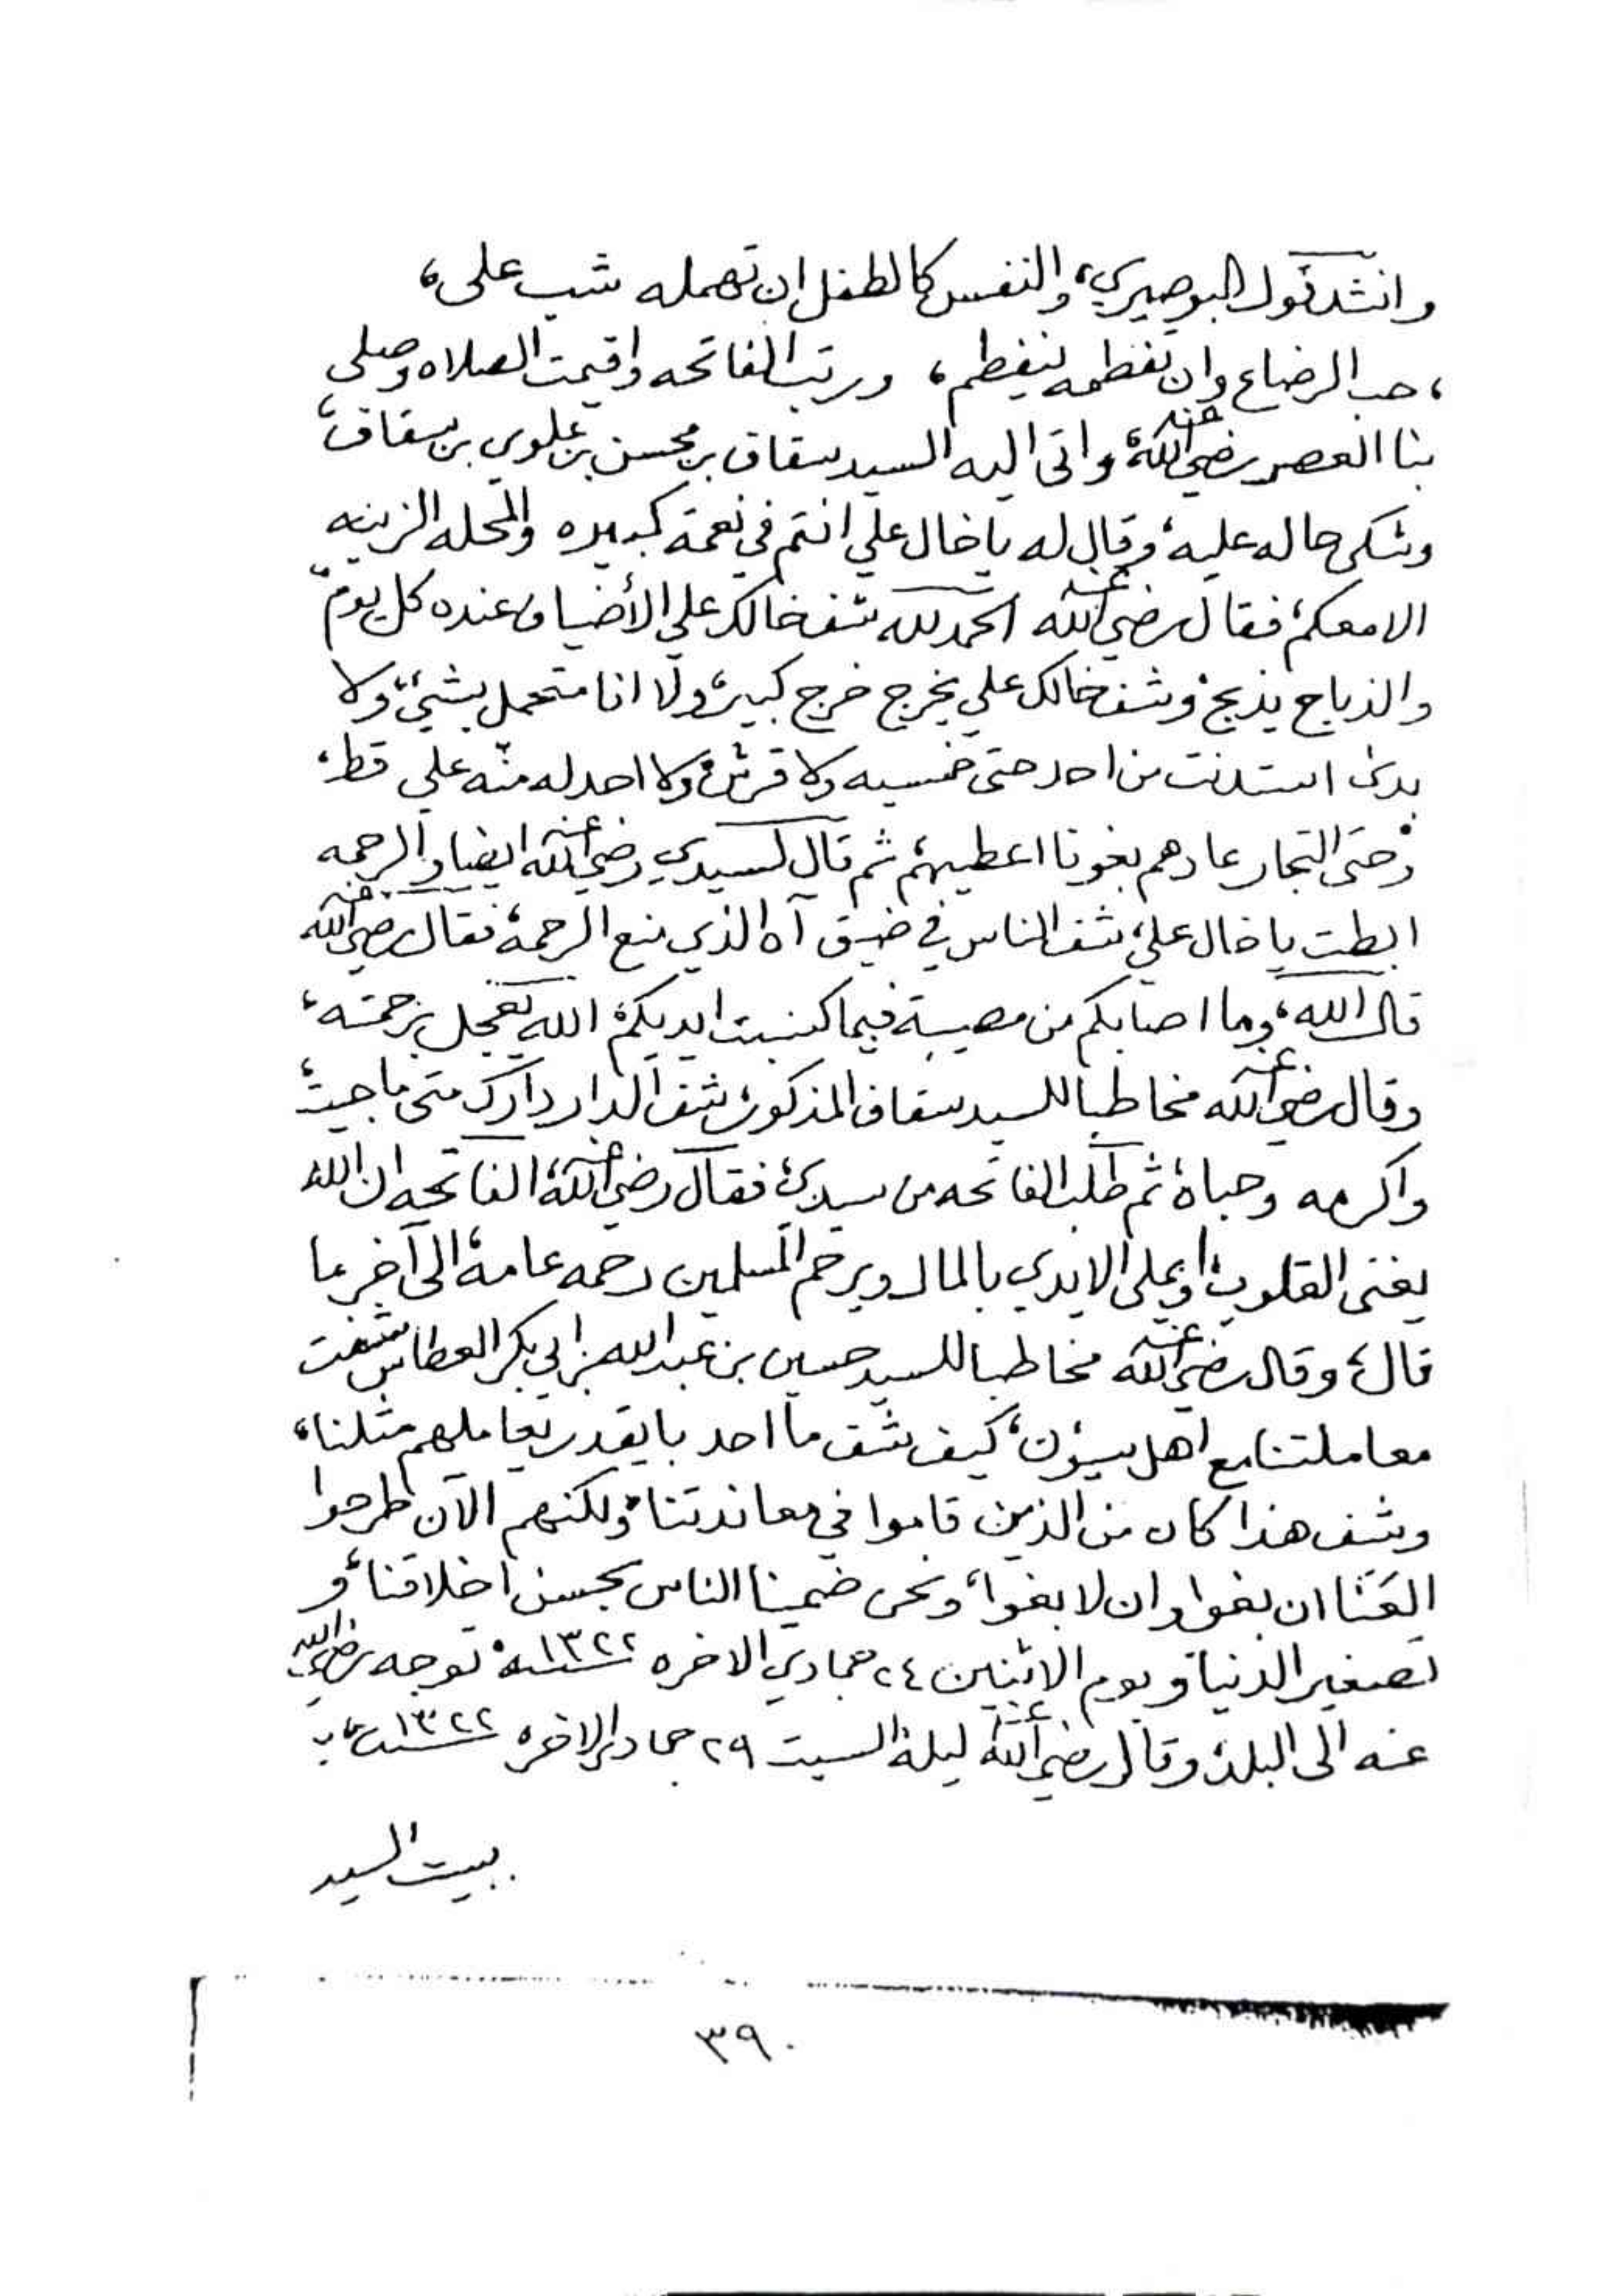 وانشد قول البوصيري، والنفس كالطفل ان تهمله شب على،
، حب الرضاع وان تفطمه ينفطم، ورتب الفاتحه واقيمت الصلاه وصلى
بنا العصر رضي الله عنه، واتى اليه السيد سقاف بن محسن بن علوي بن سقاف،
وشكى حاله عليه، وقال له يا خال علي انتم في نعمة كبيره والمحله الزينه
الا معكم، فقال رضي الله عنه الحمد لله شف خالك علي الأضياف عنده كل يوم،
والذباح يذبح، وشف خالك علي يخرج خرج كبير، ولا انا متحمل بشيء، ولا
بدى استدنت من احد حتى خمسيه ولا قرش، ولا احد له منّه علي قط،
وحتى التجار عادهم بغونا اعطيهم، ثم قال لسيدي رضي الله عنه ايضا والرحمه
ابطت يا خال علي، شف الناس في ضيق آه الذي منع الرحمة، فقال رضي الله عنه
قال الله، وما اصابكم من مصيبة فبما كسبت ايديكم، الله يعجل برحمته،
وقال رضي الله عنه مخاطبا للسيد سقاف المذكور، شف الدار دارك متى ما جيت،
واكرمه وحباه، ثم طلب الفاتحه من سيدي، فقال رضي الله عنه، الفاتحه ان الله
يغنى القلوب، او يملى الايدي بالمال ويرحم المسلمين رحمه عامة، الى آخر ما
قال، وقال رضي الله عنه مخاطبا للسيد حسين بن عبدالله بن ابي بكر العطاس شفت
معاملتنا مع اهل سيؤن، كيف شف ما احد با يقدر يعاملهم مثلنا،
وشف هذا كان من الذين قاموا في معاندتنا، ولكنهم الآن طرحوا
العَشَا ان بغوا وان لا بغوا، ونحن ضمينا الناس بحسن اخلاقنا، و
تصغير الدنيا، و يوم الاثنين ٢٤ جمادي الاخره سنة ١٣٢٢ توجه رضي الله
عنه الى البلد، وقال رضي الله عنه ليلة السبت ٢٩ جماد الاخره سنة ١٣٢٢
ببيت السيد
٣٩٠